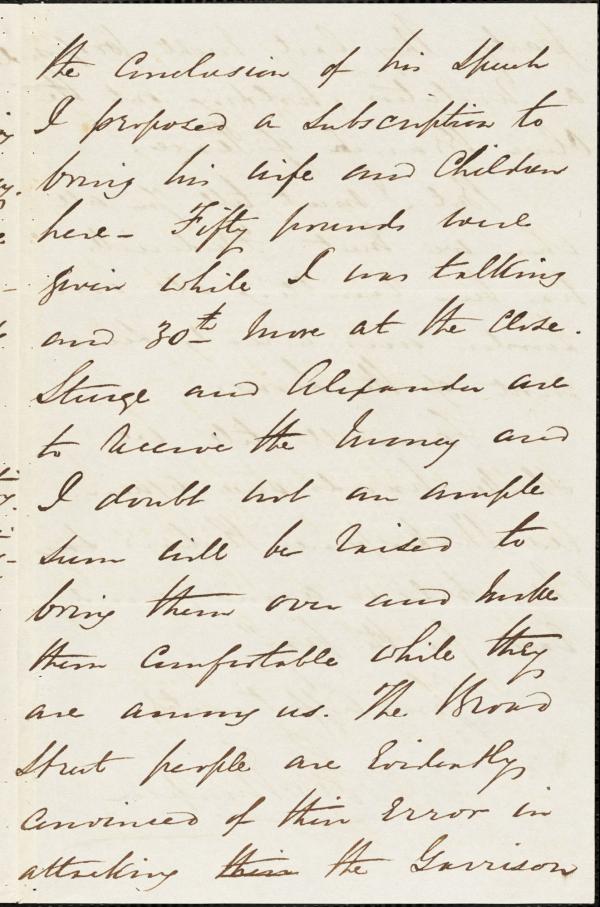 the conclusion of his speech
I proposed a subscription to
bring his wife and children
here – Fifty pounds were
given while I was talking
and 30th more at the close.
Sturge and Alexander are
to receive the money and
I doubt not an ample
sum will be raised to
bring them over and make
them comfortable while they
are among us. The Broad
Street people are evidently
convinced of their error in
attacking their the Garrison